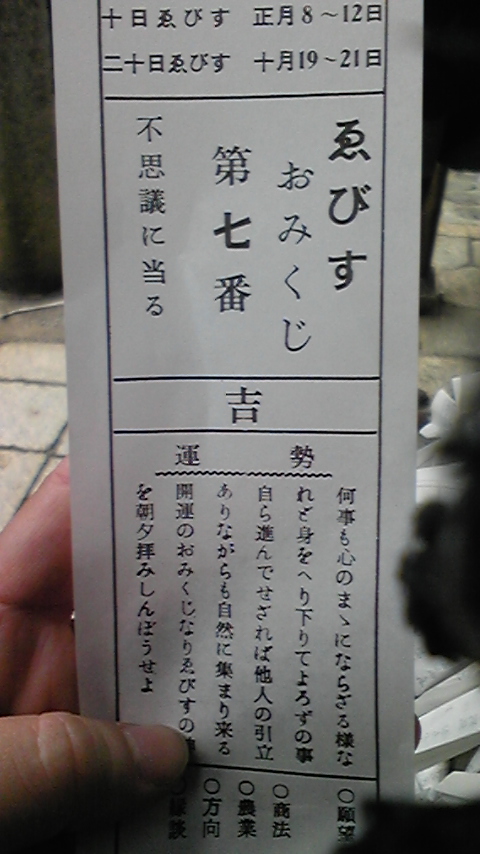 十日ゑびす 正月8〜12日
二十日ゑびす 十月19〜21日
ゑびす
おみくじ
第七番
不思議に当る
吉
運勢
何事も心のまゝにならざる様な
れど身をへり下りてよろずの事
自ら進んでせざれば他人の引立
ありながらも自然に集まり来る
開運のおみくじなりゑびすの
を朝夕拝みしんぼうせよ
○願望
○商法
○農業
○方向
○縁談